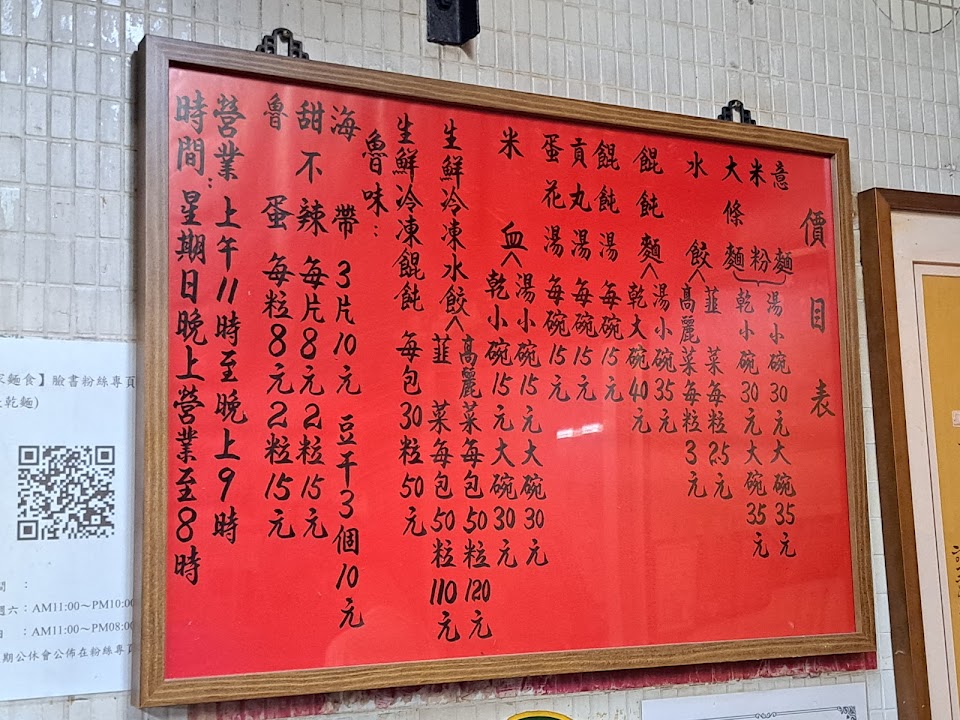 價目表
意麵
米粉
大條麵
湯小碗30元大碗35元
乾小碗30元大碗35元
水餃
韮菜每粒2.5元
高麗菜每粒3元
餛飩麵
湯小碗35元
乾大碗40元
餛飩湯每碗15元
貢丸湯每碗15元
蛋花湯每碗15元
米血
湯小碗15元大碗30元
乾小碗15元大碗30元
生鮮冷凍水餃
高麗菜每包50粒120元
韮菜每包50粒110元
生鮮冷凍餛飩每包30粒50元
魯味:
海帶3片10元豆干3個10元
甜不辣每片8元2粒15元
魯蛋每粒8元2粒15元
營業時間:上午11時至晚上9時
星期日晚上營業至8時
麵食】臉書粉絲專頁
乾麵)
間:
週六:AM11:00~PM10:00
日:AM11:00~PM08:00
期公休會公佈在粉絲專頁